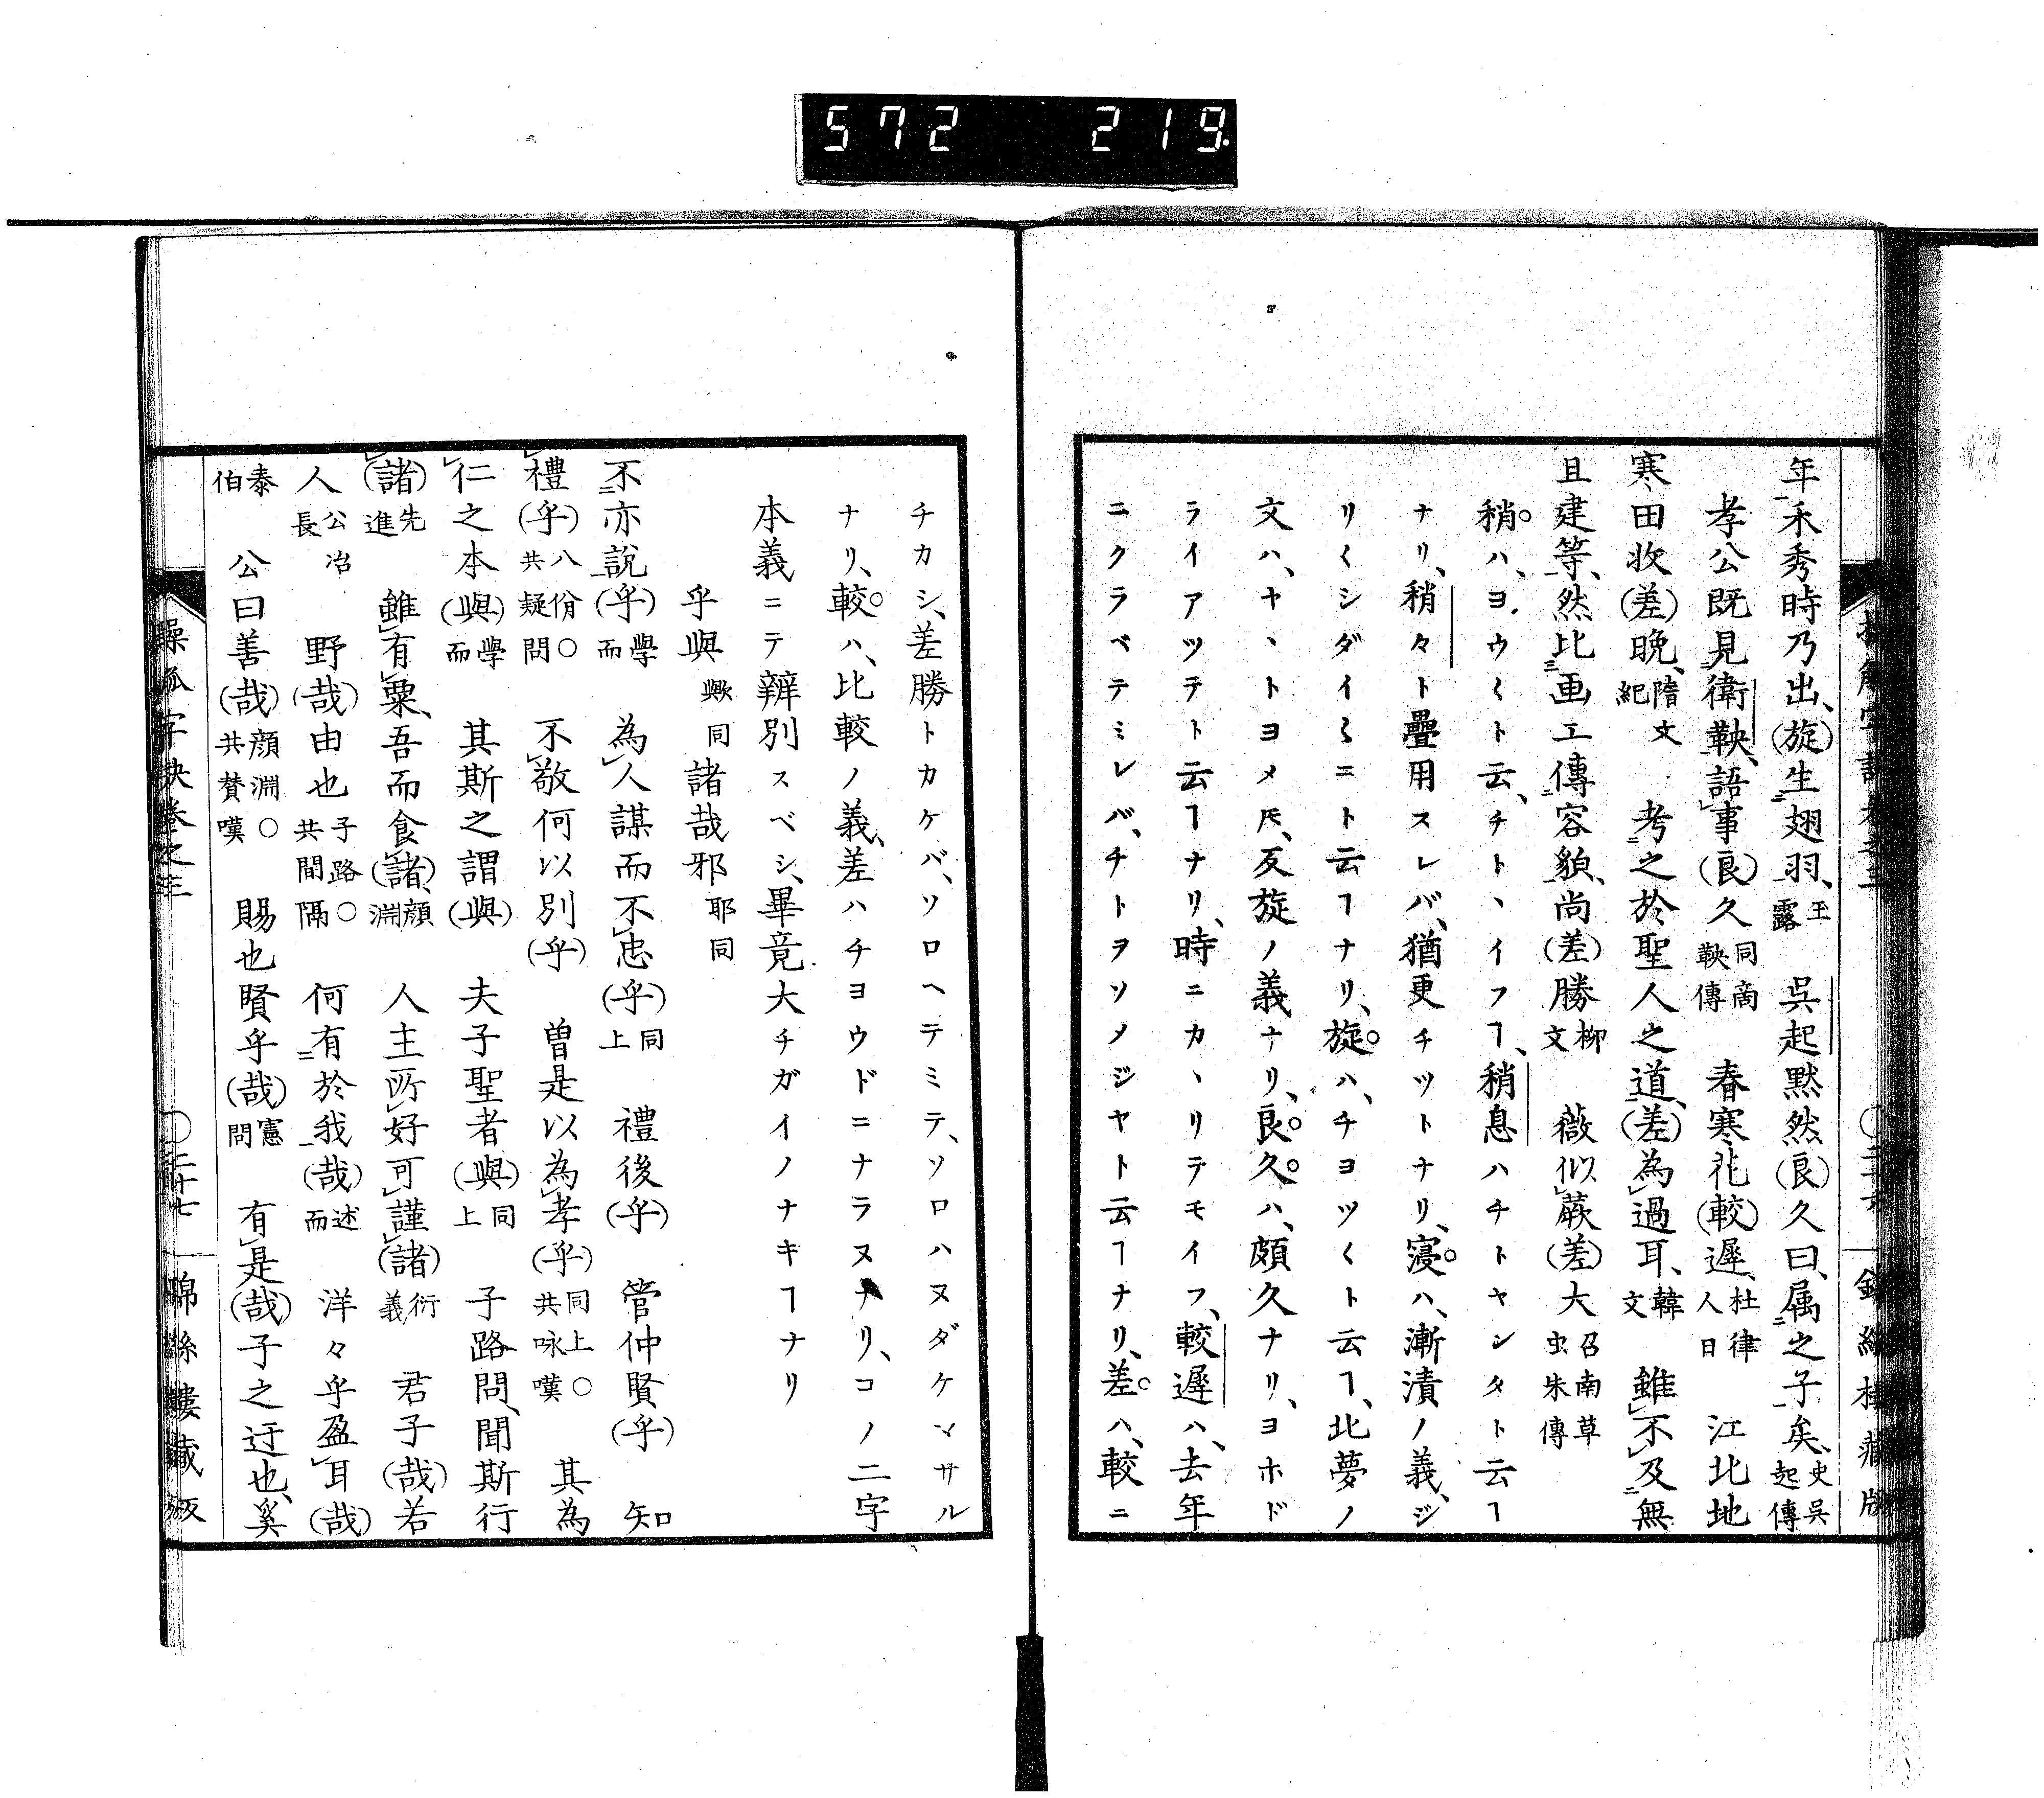 572 219
年禾秀時乃出、(旋)生翅羽、玉露 呉起黙然(良)久曰、属之子矣、史呉起傳
孝公既見衛鞅、語事(良)久同商鞅傳 春寒花(較)遲、杜律人日 江北地
寒田收(差)晩、隋文紀 考之於聖人之道、(差)為過耳、韓文 雖不及無
且建等、然比画工傳容貌、尚(差)勝柳文 薇似蕨(差)大召南草虫朱傳
稍ハ、ヨウ〱ト云、チト、イフヿ、稍息ハチトヤシタト云ヿ
ナリ、稍々ト疊用スレバ、猶更チツトナリ、寖ハ、漸漬ノ義、ジ
リ〱シダイ〱ニト云ヿナリ、旋ハ、チヨツ〱ト云ヿ、北夢ノ
文ハ、ヤヽトヨメ𪜈、反旋ノ義ナリ、良久ハ、頗久ナリ、ヨホド
ライアツテト云ヿナリ、時ニカヽリテモイフ、較遲ハ、去年
ニクラベテミレバ、チトヲソメジヤト云ヿナリ、差ハ、較ニ
チカシ、差勝トカケバ、ソロヘテミテ、ソロハヌダケマサル
ナリ、較ハ、比較ノ義、差ハチヨウドニナラヌナリ、コノ二字
本義ニテ辨別スベシ、畢竟大チガイノナキヿナリ
乎與歟同諸哉邪耶同
不亦説(乎)學而 為人謀而不忠(乎)同上 禮後(乎) 管仲賢(乎) 知
禮(乎)八佾○共疑問 不敬何以別(乎) 曽是以為孝(乎)同上○共咏嘆 其為
仁之本(與)學而 其斯之謂(與) 夫子聖者(與)同上 子路問、聞斯行
(諸)先進 雖有粟、吾而食(諸)、顔淵 人主所好可謹(諸)衍義 君子(哉)若
人公冶長 野(哉)由也子路○共間隔 何有於我(哉)述而 洋々乎盈耳(哉)
泰伯 公曰善(哉)顔淵○共賛嘆 賜也賢乎(哉)憲問 有是(哉)子之迂也、奚
操觚字訣巻之三 ○二十七 錦絲樓藏版